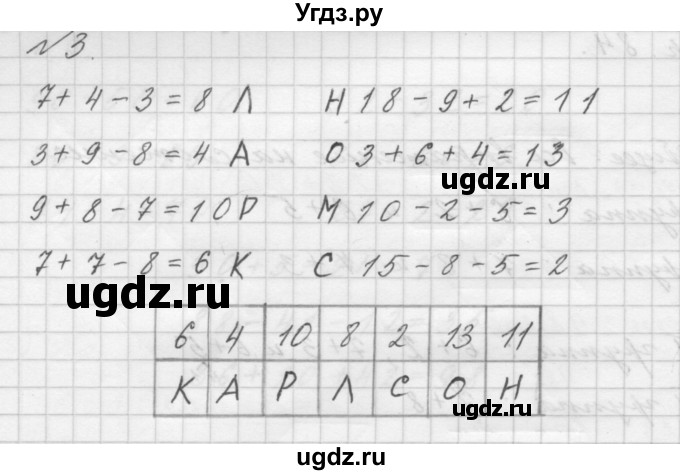 Угдз.ру
№3.
7+4-3=8 Л    Н 18-9+2=11
3+9-8=4 А    О 3+6+4=13
угдз.ру
9+8-7=10 Р    М 10-2-5=3
7+7-8=6 К    С 15-8-5=2
ugdz.ru
6 4 10 8 2 13 11
К А Р Л С О Н
ugdz.ru
ugdz.ru